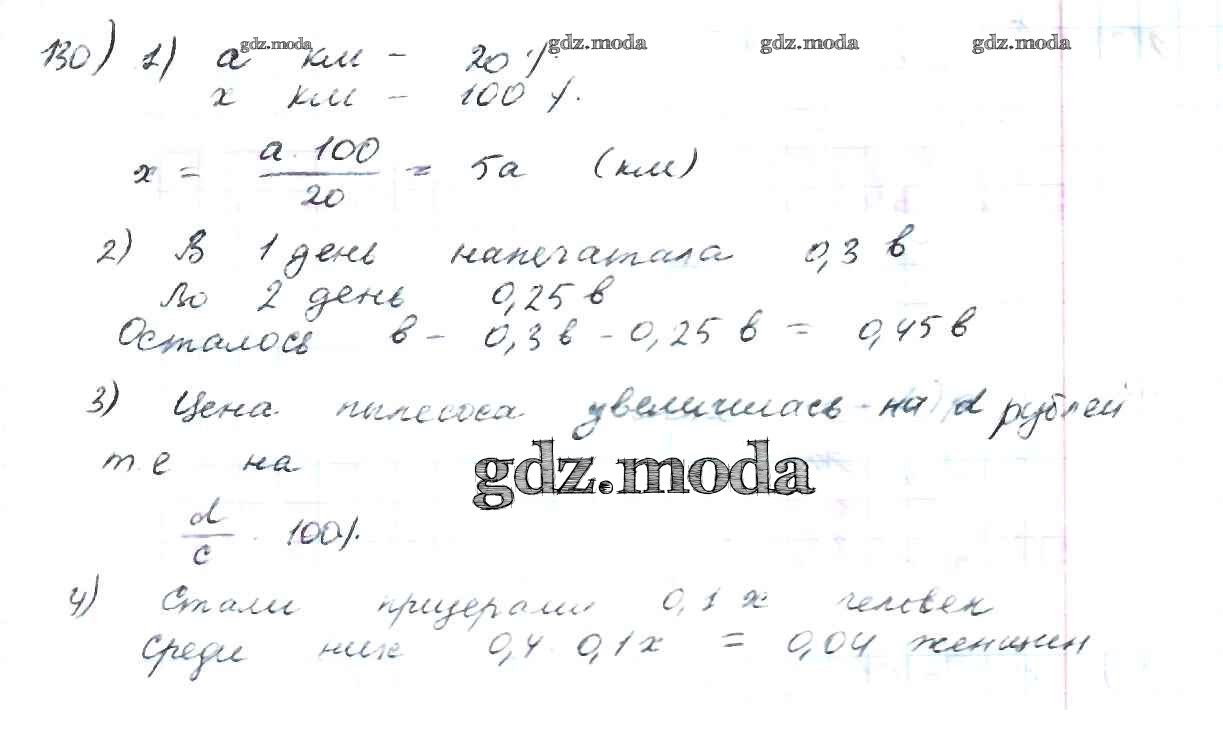 gdz.moda gdz.moda gdz.moda gdz.moda
130) 1) a км - 20%
x км - 100%.
x = a · 100 / 20 = 5a (км)
2) В 1 день напечатала 0,3 в
Во 2 день 0,25 в
Осталось в - 0,3 в - 0,25 в = 0,45 в
3) Цена пылесоса увеличилась на d рублей
т.е на
gdz.moda
d / c · 100%.
4) Стали призерами 0,1 x человек
Среди них 0,4 · 0,1 x = 0,04 женщин